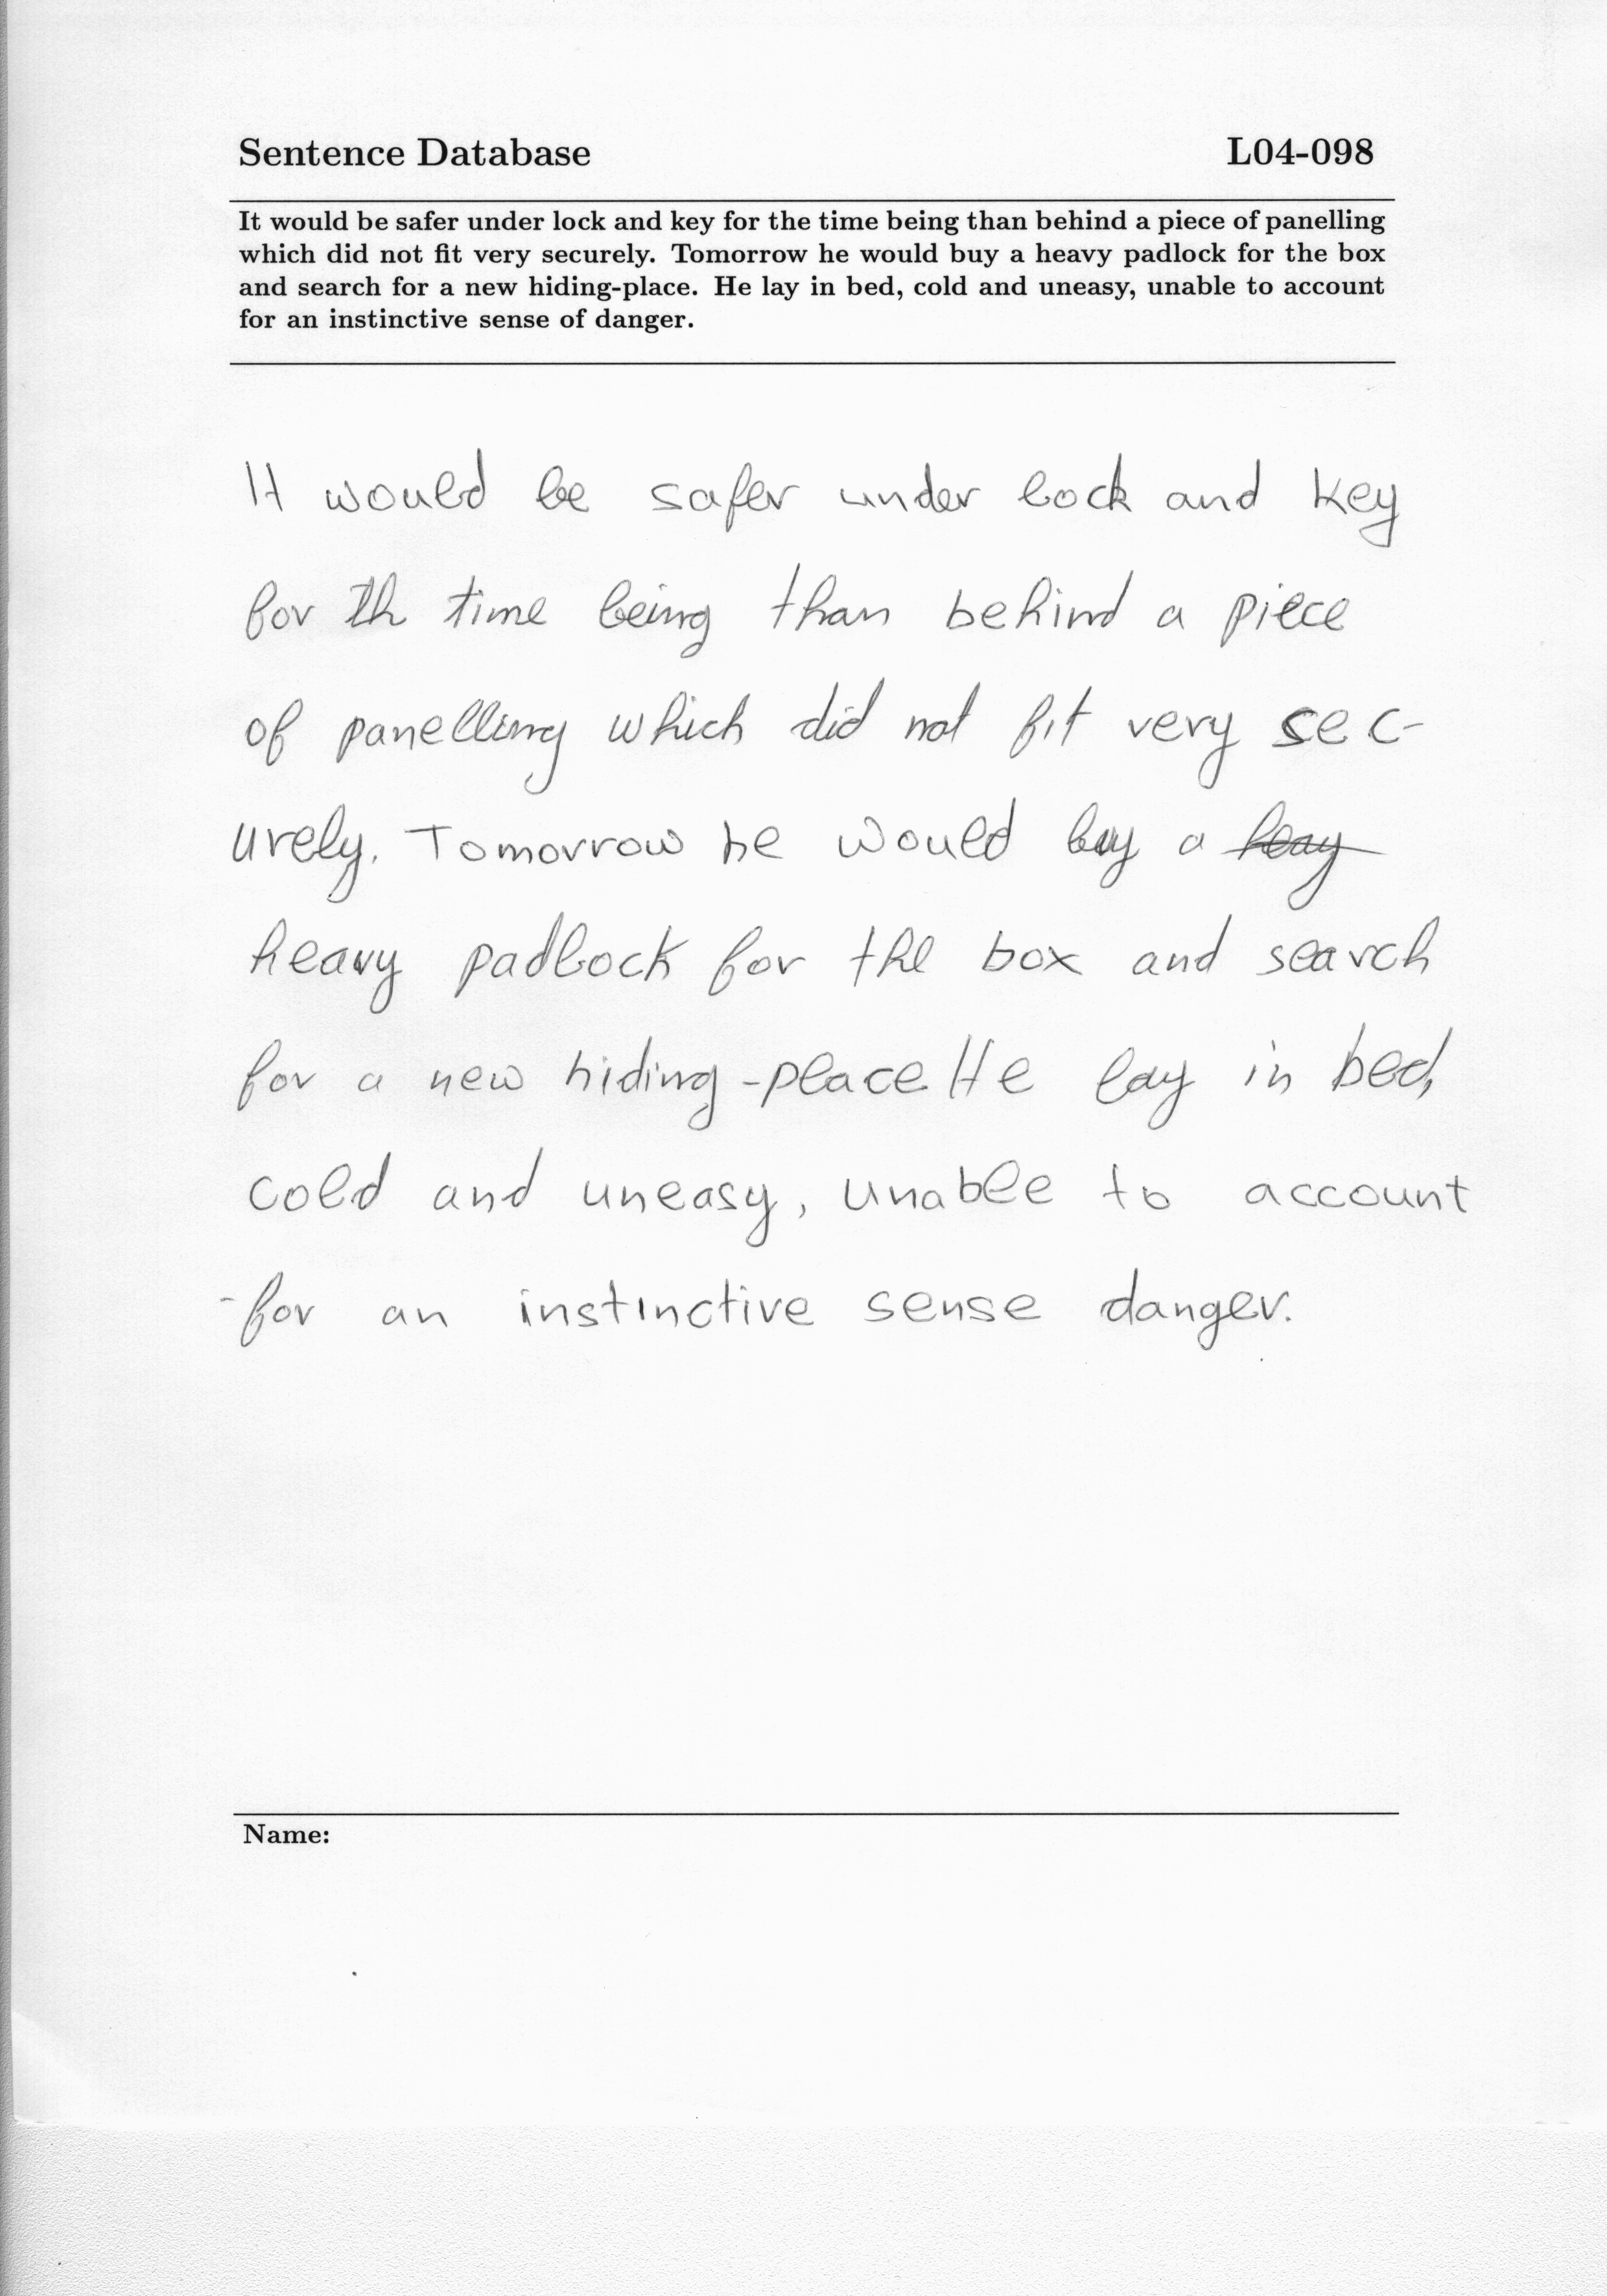 Sentence Database L04-098
It would be safer under lock and key for the time being than behind a piece of panelling
which did not fit very securely. Tomorrow he would buy a heavy padlock for the box
and search for a new hiding-place. He lay in bed, cold and uneasy, unable to account
for an instinctive sense of danger.
It would be safer under lock and key
for th time being than behind a piece
of panelling which did not fit very sec-
urely. Tomorrow he would buy a
heavy padlock for the box and search
for a new hiding-place. He lay in bed,
cold and uneasy, unable to account
for an instinctive sense danger.
Name: